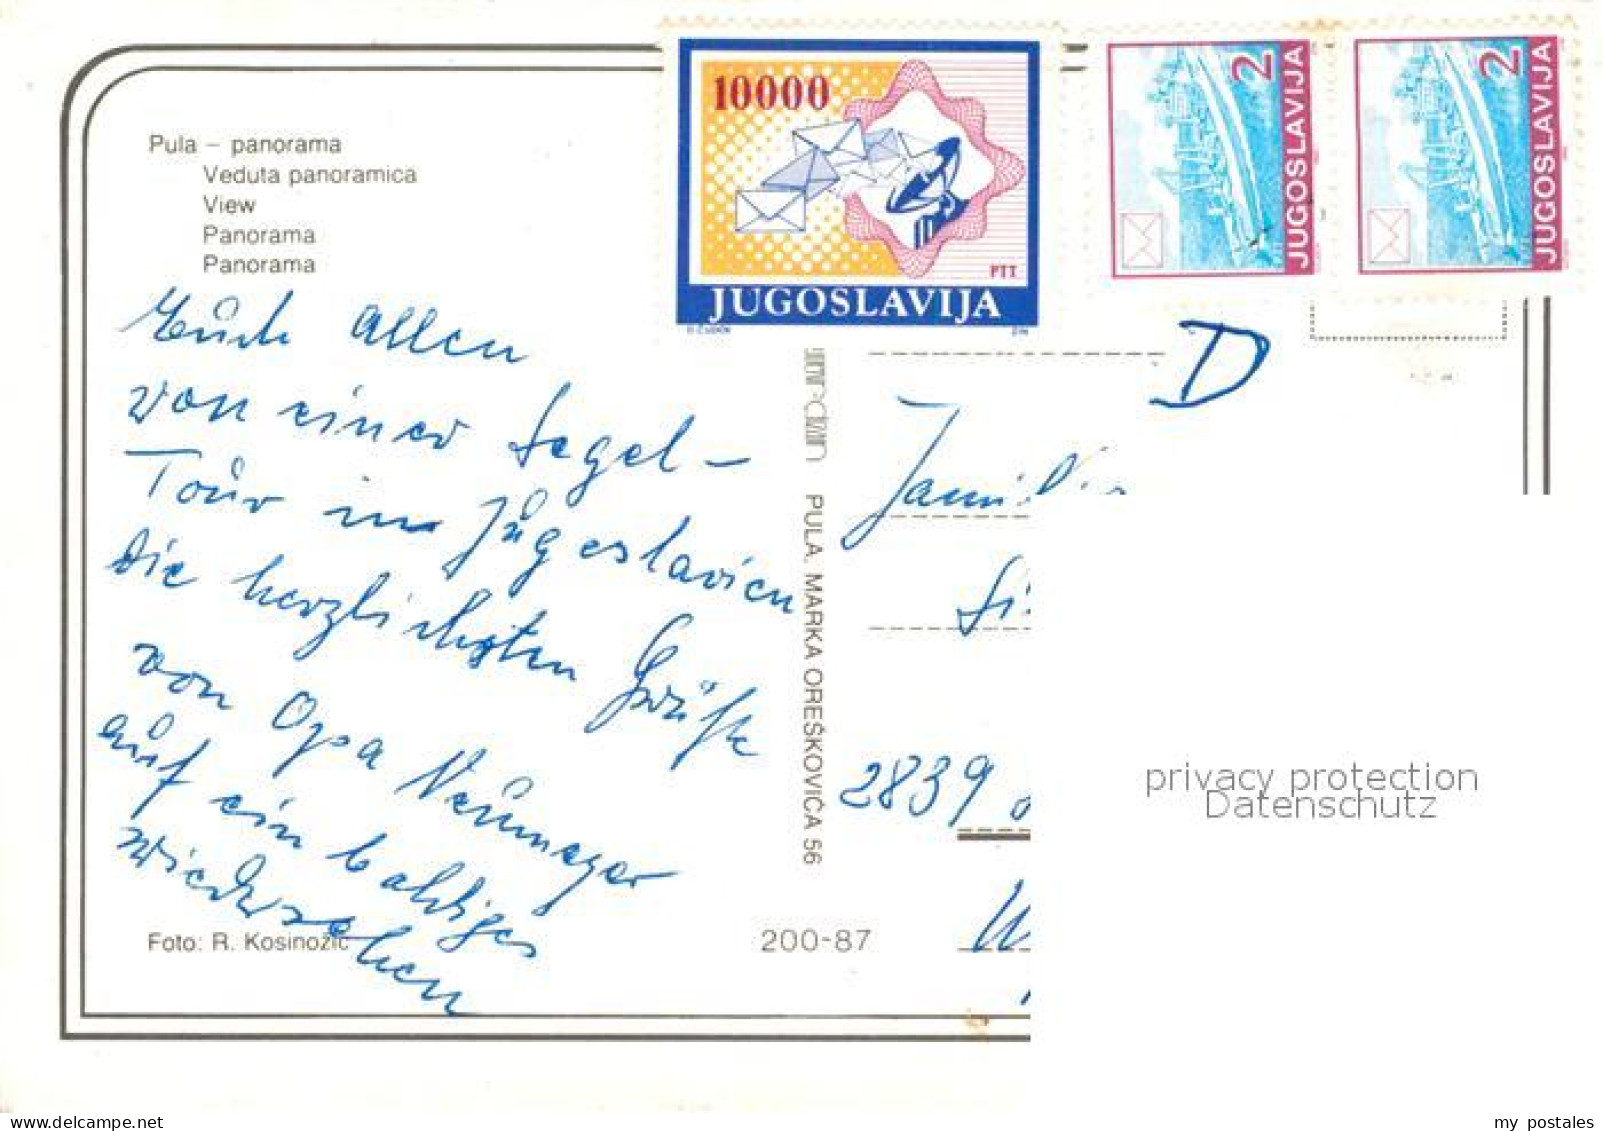 10000
PTT
JUGOSLAVIJA
2
JUGOSLAVIJA
2
JUGOSLAVIJA
Pula – panorama
Veduta panoramica
View
Panorama
Panorama
Euch allen
von einer Segel –
Tour in Jugoslavien
die herzlichsten Grüße
von Opa Neumeyer
auf ein baldiges
wiedersehen
Foto: R. Kosinožić
200-87
PULA, MARKA OREŠKOVIĆA 56
D
2839
privacy protection
Datenschutz
my postales